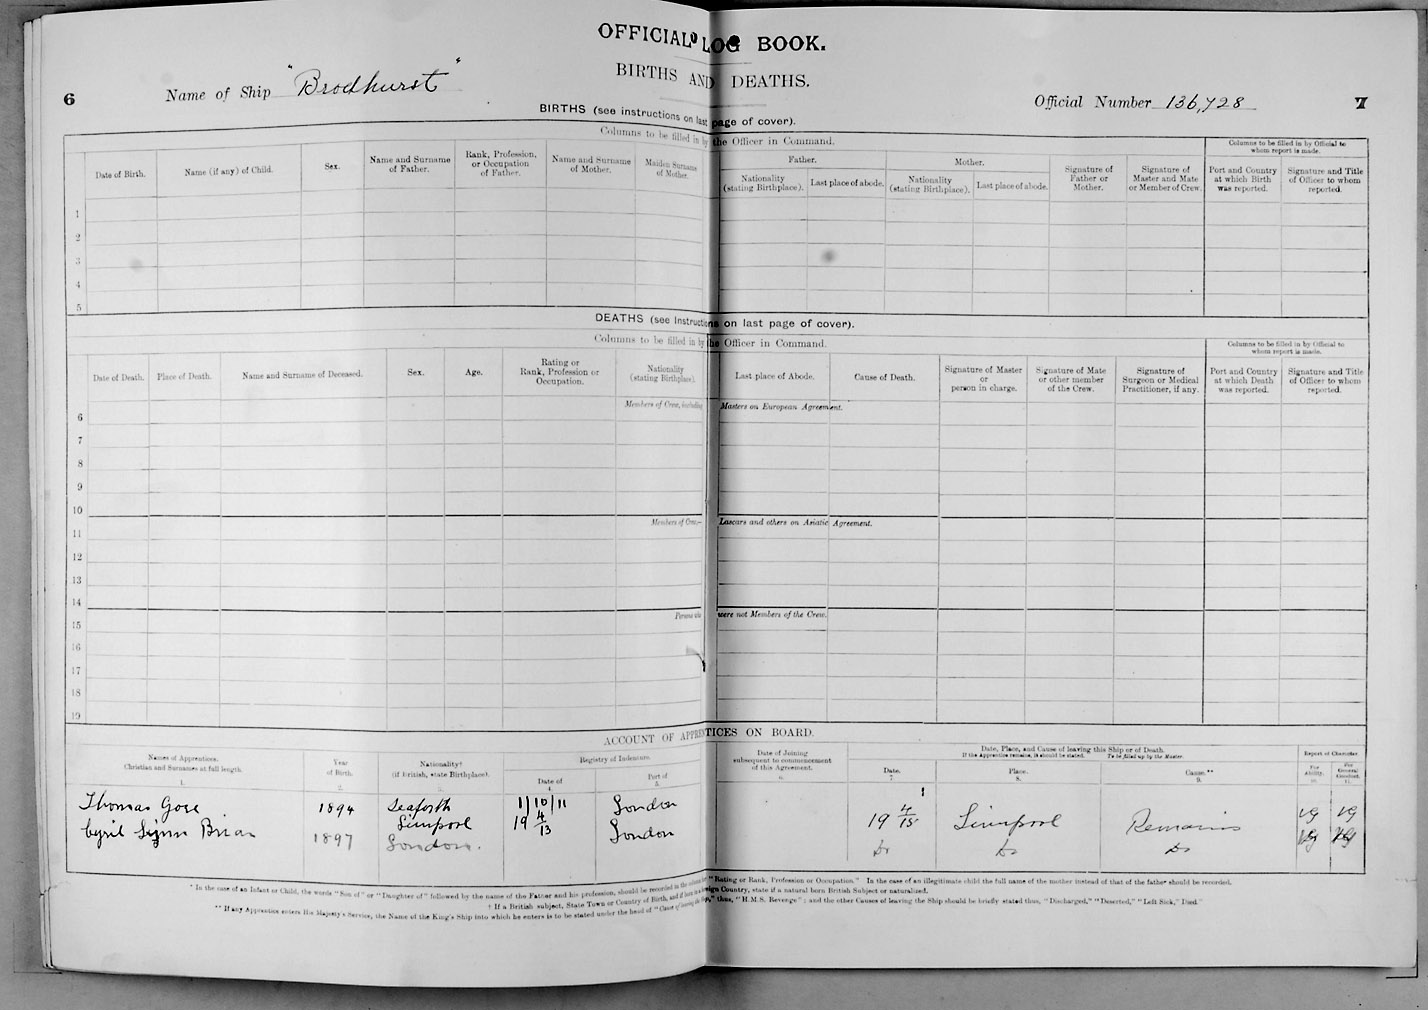 OFFICIAL LOG BOOK.
6
Name of Ship "Brodhurst"
BIRTHS AND DEATHS.
Official Number 136,728
7
BIRTHS (see instructions on last page of cover).
Columns to be filled in by the Officer in Command.
Columns to be filled in by Official to whom report is made.
Father.
Mother.
Date of Birth.
Name (if any) of Child.
Sex.
Name and Surname of Father.
Rank, Profession, or Occupation of Father.
Name and Surname of Mother.
Maiden Surname of Mother.
Nationality (stating Birthplace).
Last place of abode.
Nationality (stating Birthplace).
Last place of abode.
Signature of Father or Mother.
Signature of Master and Mate or Member of Crew.
Port and Country at which Birth was reported.
Signature and Title of Officer to whom reported.
1
2
3
4
5
DEATHS (see Instructions on last page of cover).
Columns to be filled in by the Officer in Command.
Columns to be filled in by Official to whom report is made.
Date of Death.
Place of Death.
Name and Surname of Deceased.
Sex.
Age.
Rating or Rank, Profession or Occupation.
Nationality (stating Birthplace).
Last place of Abode.
Cause of Death.
Signature of Master or person in charge.
Signature of Mate or other member of the Crew.
Signature of Surgeon or Medical Practitioner, if any.
Port and Country at which Death was reported.
Signature and Title of Officer to whom reported.
Members of Crew, including Masters on European Agreement.
6
7
8
9
10
Members of Crew.— Lascars and others on Asiatic Agreement.
11
12
13
14
Persons who were not Members of the Crew.
15
16
17
18
19
ACCOUNT OF APPRENTICES ON BOARD.
Names of Apprentices. Christian and Surnames at full length.
1.
Year of Birth.
2.
Nationality† (if British, state Birthplace).
3.
Registry of Indenture.
Date of
4.
Port of
5.
Date of Joining subsequent to commencement of this Agreement.
6.
Date, Place, and Cause of leaving this Ship or of Death.
If the Apprentice remains, it should be stated. To be filled up by the Master.
Date.
7.
Place.
8.
Cause.**
9.
Report of Character
For Ability.
10.
For General Conduct.
11.
Thomas Gore 1894 Seaforth Liverpool 1/10/11 London 19 4/15 Liverpool Remains VG VG
Cyril Brian 1897 London. 19 4/13 London Do Do Do VG VG
* In the case of an Infant or Child, the words "Son of" or "Daughter of" followed by the name of the Father and his profession, should be recorded in the column for "Rating or Rank, Profession or Occupation." In the case of an illegitimate child the full name of the mother instead of that of the father should be recorded.
† If a British subject, State Town or Country of Birth, and if born in a Foreign Country, state if a natural born British Subject or naturalized.
** If any Apprentice enters His Majesty's Service, the Name of the King's Ship into which he enters is to be stated under the head of "Cause of leaving the Ship," thus, "H.M.S. Revenge"; and the other Causes of leaving the Ship should be briefly stated thus, "Discharged," "Deserted," "Left Sick," Died."